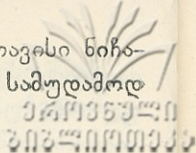 თავისი ნიჭა-
სამუდამოდ
ეროვნული
ბიბლიოთეკა